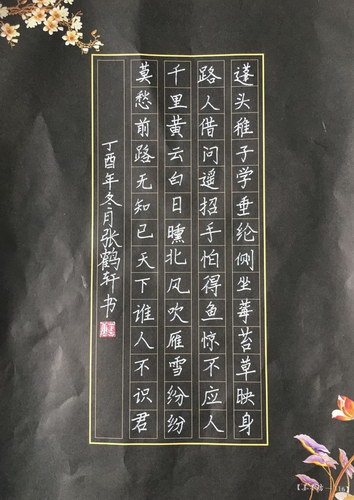 蓬头稚子学垂纶侧坐莓苔草映身
路人借问遥招手怕得鱼惊不应人
千里黄云白日曛北风吹雁雪纷纷
莫愁前路无知已天下谁人不识君
丁酉年冬月张鹤轩书